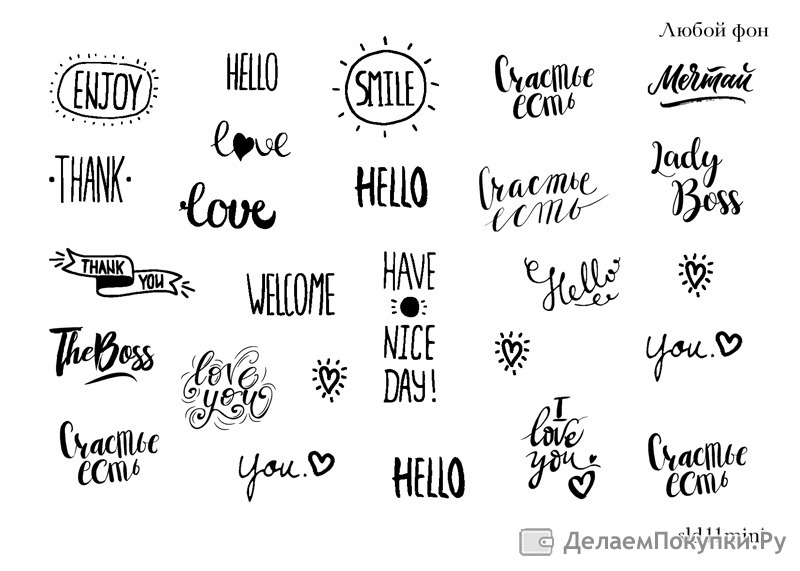 Любой фон
ENJOY
HELLO
SMILE
Счастье
есть
Мечтай
love
THANK
love
HELLO
Счастье
есть
Lady
Boss
THANK
YOU
WELCOME
HAVE
NICE
DAY!
Hello
The Boss
love
you
you.
Счастье
есть
you.
HELLO
I
love
you
Счастье
есть
sld11mini
ДелаемПокупки.Ру